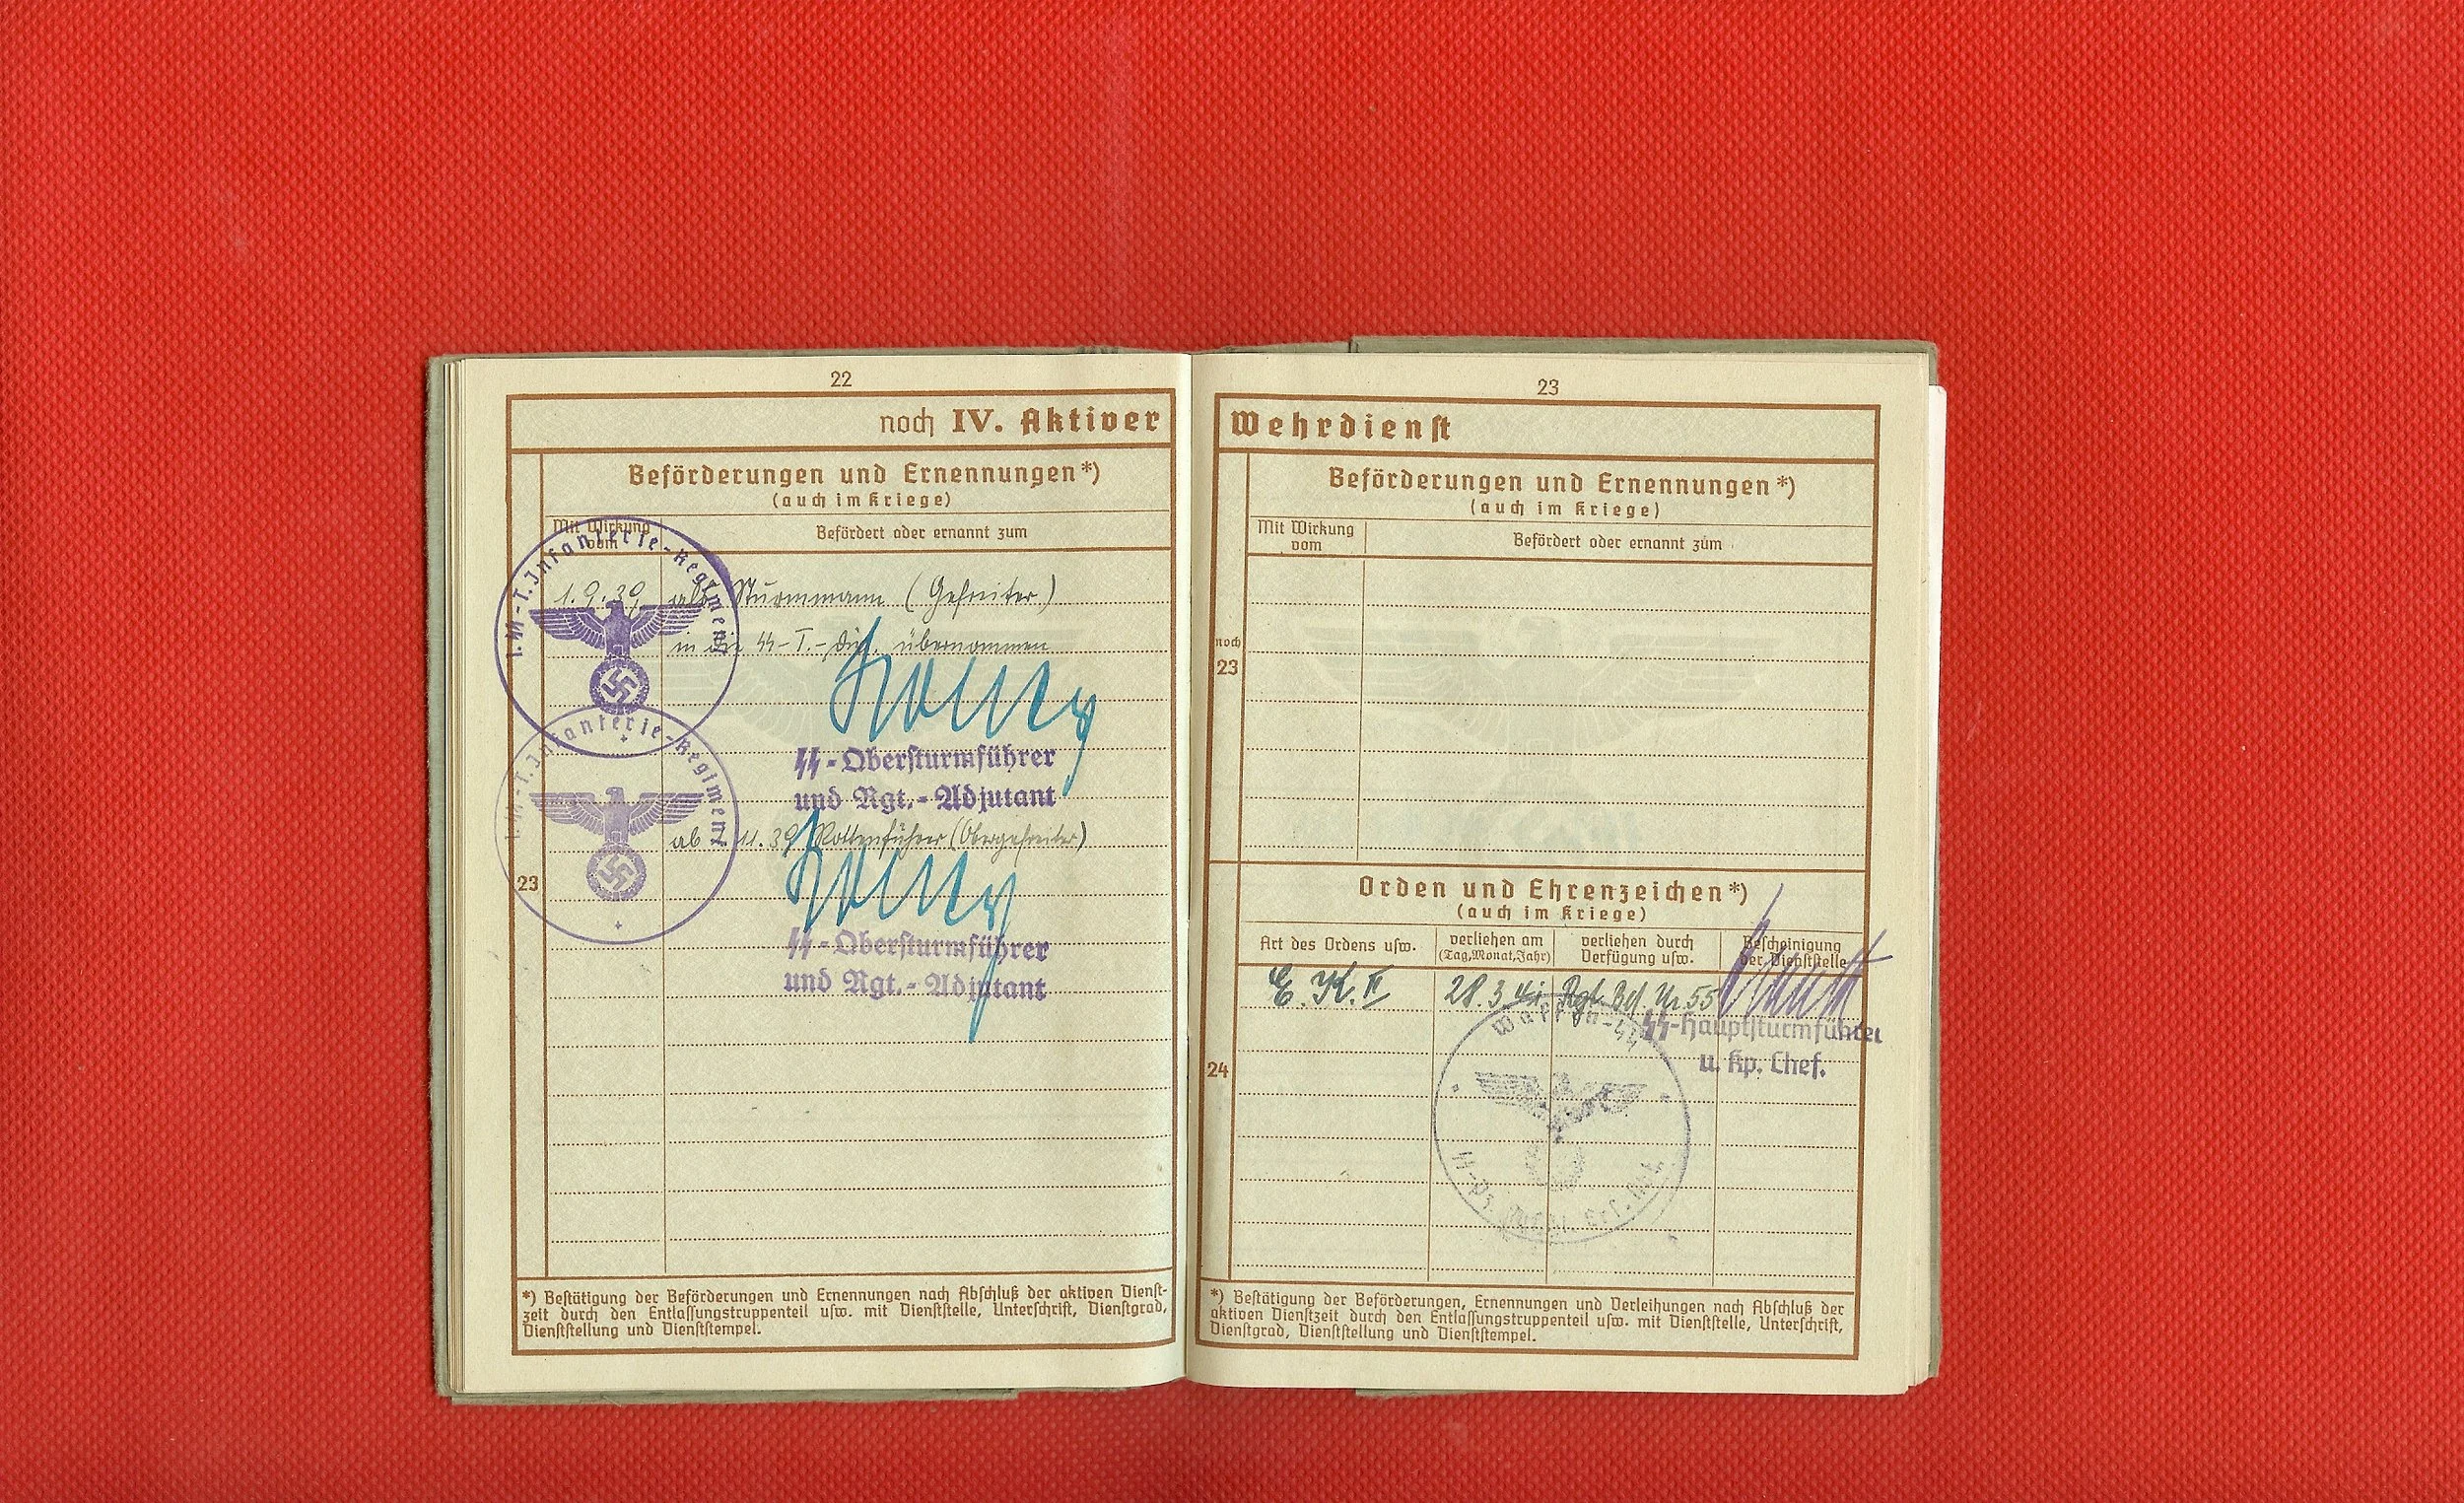 22
noch IV. Aktiver
Beförderungen und Ernennungen*)
(auch im Kriege)
Mit Wirkung
vom
Befördert oder ernannt zum
1. ϟϟ-T. Infanterie-Regiment
1.9.39 als Sturmmann (Gefreiter)
in die ϟϟ-T.-Div. übernommen
ϟϟ-Obersturmführer
und Rgt.-Adjutant
1. ϟϟ-T. Infanterie-Regiment
ab 1.11.39 Rottenführer (Obergefreiter)
23
ϟϟ-Obersturmführer
und Rgt.-Adjutant
*) Bestätigung der Beförderungen und Ernennungen nach Abschluß der aktiven Dienst-
zeit durch den Entlassungstruppenteil usw. mit Dienststelle, Unterschrift, Dienstgrad,
Dienststellung und Dienststempel.
23
Wehrdienst
Beförderungen und Ernennungen*)
(auch im Kriege)
Mit Wirkung
vom
Befördert oder ernannt zum
noch
23
Orden und Ehrenzeichen*)
(auch im Kriege)
Art des Ordens usw.
verliehen am
(Tag, Monat, Jahr)
verliehen durch
Verfügung usw.
Bescheinigung
der Dienststelle
E. K. II 28.3.41 Rgt. Bef. Nr. 55
ϟϟ-Hauptsturmführer
u. Kp. Chef.
Waffen-ϟϟ
24
ϟϟ-Pz. Ers. Abt.
*) Bestätigung der Beförderungen, Ernennungen und Verleihungen nach Abschluß der
aktiven Dienstzeit durch den Entlassungstruppenteil usw. mit Dienststelle, Unterschrift,
Dienstgrad, Dienststellung und Dienststempel.